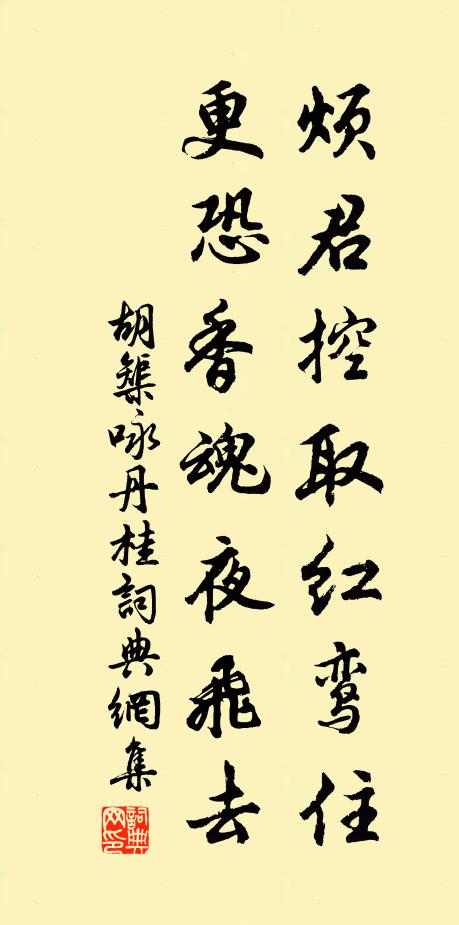 烦君控取红鸾住
更恐香魂夜飛去
胡榘咏丹桂詞典網集
詞典
网印